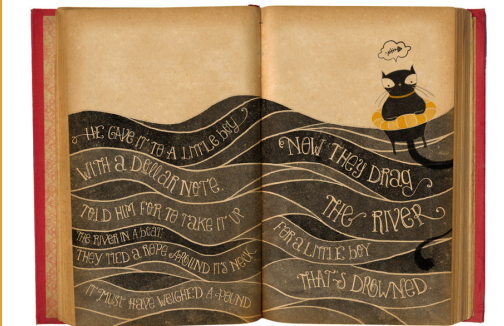 HE GAVE IT TO A LITTLE BOY
WITH A DOLLAR NOTE.
TOLD HIM FOR TO TAKE IT UP
THE RIVER IN A BOAT.
THEY TIED A ROPE AROUND ITS NECK
IT MUST HAVE WEIGHED A POUND
NOW THEY DRAG
THE RIVER
FOR A LITTLE BOY
THAT'S DROWNED